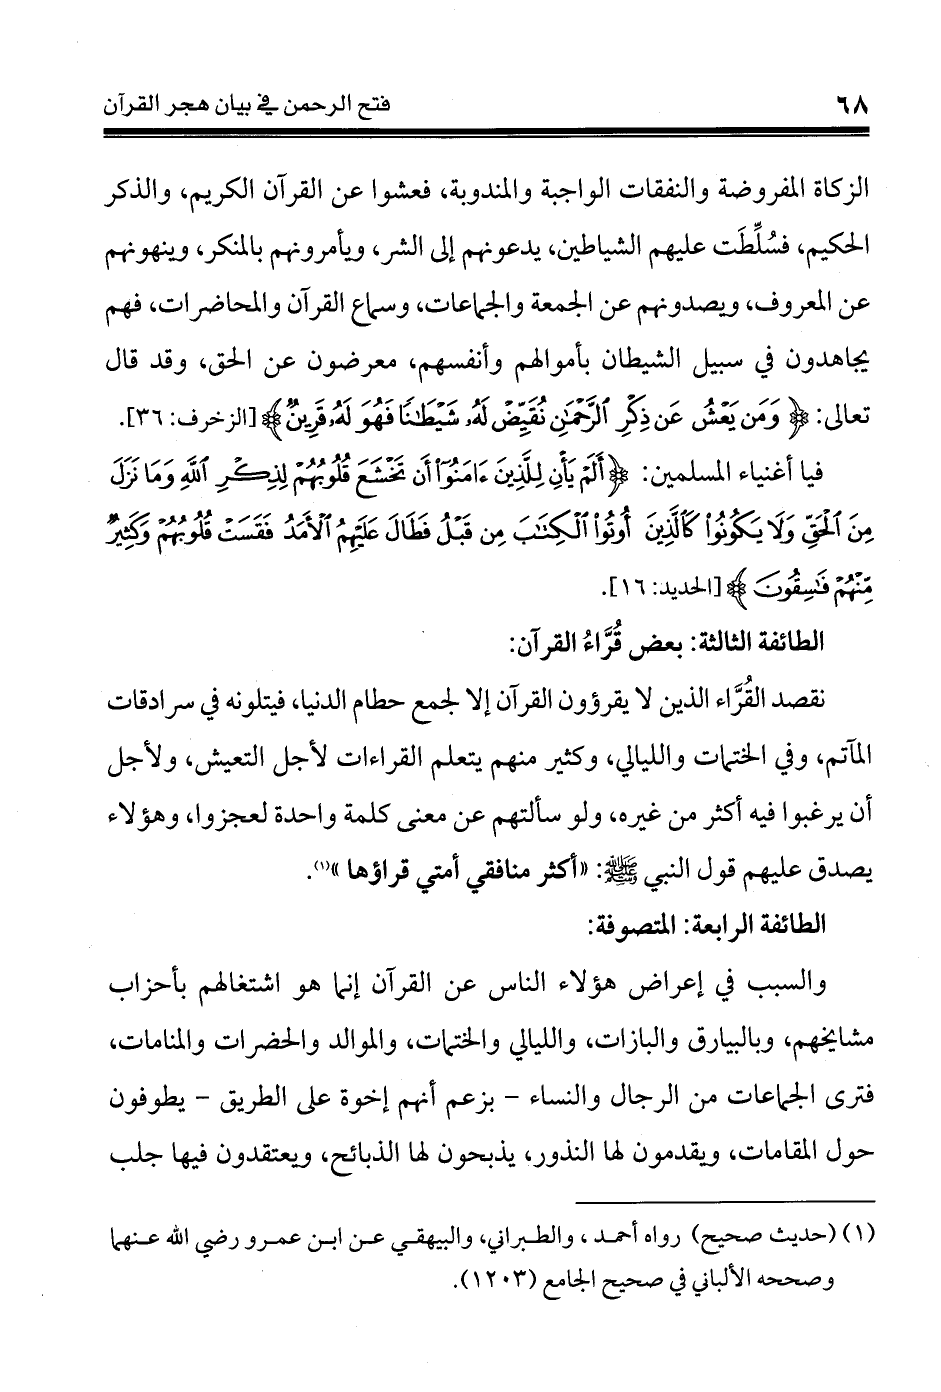 ٦٨ فتح الرحمن في بيان هجر القرآن
الزكاة المفروضة والنفقات الواجبة والمندوبة، فعشوا عن القرآن الكريم، والذكر
الحكيم، فسُلِّطَت عليهم الشياطين، يدعونهم إلى الشر، ويأمرونهم بالمنكر، وينهونهم
عن المعروف، ويصدونهم عن الجمعة والجماعات، وسماع القرآن والمحاضرات، فهم
يجاهدون في سبيل الشيطان بأموالهم وأنفسهم، معرضون عن الحق، وقد قال
تعالى: ﴿ وَمَن يَعْشُ عَن ذِكْرِ ٱلرَّحْمَٰنِ نُقَيِّضْ لَهُۥ شَيْطَٰنًا فَهُوَ لَهُۥ قَرِينٌ ﴾ [الزخرف: ٣٦].
فيا أغنياء المسلمين: ﴿ أَلَمْ يَأْنِ لِلَّذِينَ ءَامَنُوٓا۟ أَن تَخْشَعَ قُلُوبُهُمْ لِذِكْرِ ٱللَّهِ وَمَا نَزَلَ
مِنَ ٱلْحَقِّ وَلَا يَكُونُوا۟ كَٱلَّذِينَ أُوتُوا۟ ٱلْكِتَٰبَ مِن قَبْلُ فَطَالَ عَلَيْهِمُ ٱلْأَمَدُ فَقَسَتْ قُلُوبُهُمْ وَكَثِيرٌ
مِّنْهُمْ فَٰسِقُونَ ﴾ [الحديد: ١٦].
الطائفة الثالثة: بعض قُرَّاءُ القرآن:
نقصد القُرَّاء الذين لا يقرؤون القرآن إلا لجمع حطام الدنيا، فيتلونه في سرادقات
المآتم، وفي الختمات والليالي، وكثير منهم يتعلم القراءات لأجل التعيش، ولأجل
أن يرغبوا فيه أكثر من غيره، ولو سألتهم عن معنى كلمة واحدة لعجزوا، وهؤلاء
يصدق عليهم قول النبي ﷺ: «أكثر منافقي أمتي قراؤها »(١).
الطائفة الرابعة: المتصوفة:
والسبب في إعراض هؤلاء الناس عن القرآن إنما هو اشتغالهم بأحزاب
مشايخهم، وبالبيارق والبازات، والليالي والختمات، والموالد والحضرات والمنامات،
فترى الجماعات من الرجال والنساء - بزعم أنهم إخوة على الطريق - يطوفون
حول المقامات، ويقدمون لها النذور، يذبحون لها الذبائح، ويعتقدون فيها جلب
(١) (حديث صحيح) رواه أحمد ، والطبراني، والبيهقي عن ابن عمرو رضي الله عنهما
وصححه الألباني في صحيح الجامع (١٢٠٣).